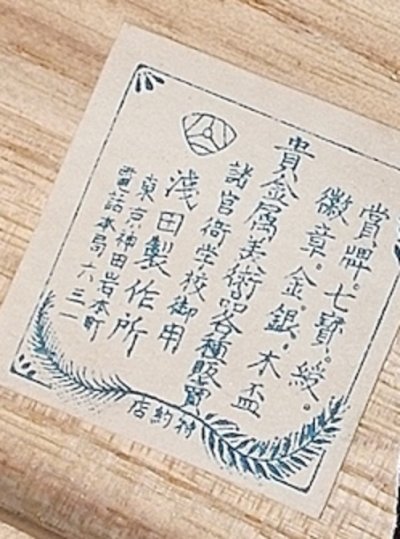 賞牌。七寳。綬。
徽章。金。銀。木盃
貴金属美術品各種販買
諸官衙学校御用
淺田製作所
東京神田岩本町
電話本局六三一
特約店